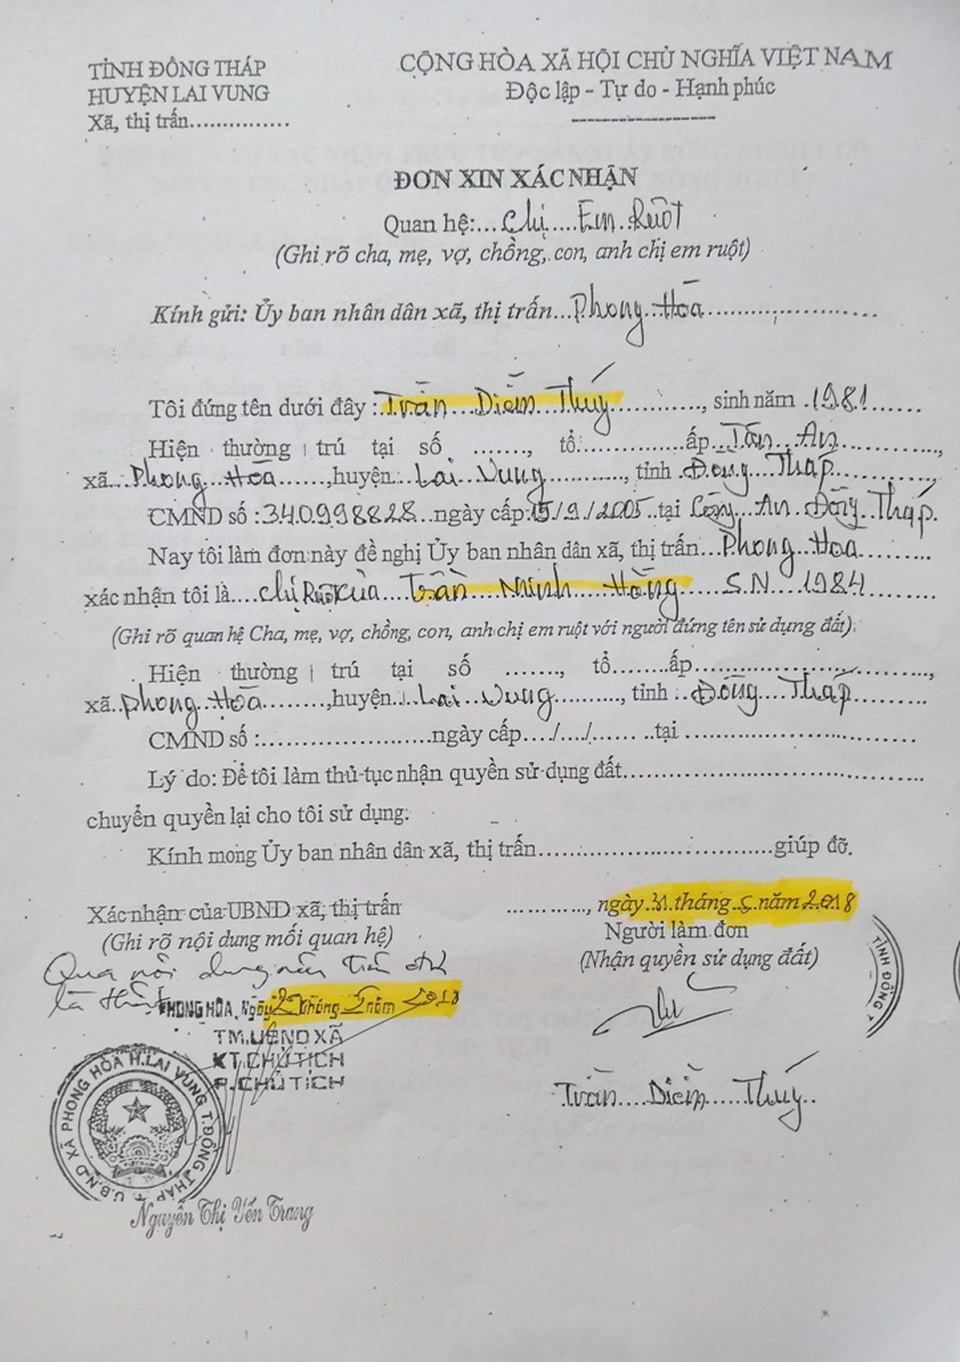 TỈNH ĐỒNG THÁP
HUYỆN LAI VUNG
Xã, thị trấn...............
CỘNG HÒA XÃ HỘI CHỦ NGHĨA VIỆT NAM
Độc lập - Tự do - Hạnh phúc
ĐƠN XIN XÁC NHẬN
Quan hệ:...Chị....Em.Ruột
(Ghi rõ cha, mẹ, vợ, chồng, con, anh chị em ruột)
Kính gửi: Ủy ban nhân dân xã, thị trấn...Phong Hòa........................
Tôi đứng tên dưới đây :Trần....Diễm...Thúy............, sinh năm .1981......
Hiện thường trú tại số ......., tổ...............ấp..Tân...An..............,
xã...Phong..Hòa......,huyện..Lai..Vung..........., tỉnh .Đồng...Tháp..............,
CMND số :340998828..ngày cấp:15/9/2005..tại Công..An..Đồng..Tháp.
Nay tôi làm đơn này đề nghị Ủy ban nhân dân xã, thị trấn...Phong..Hòa..........
xác nhận tôi là....chị Ruột của...Trần....Minh....Hồng......S.N...1984.........
(Ghi rõ quan hệ Cha, mẹ, vợ, chồng, con, anh chị em ruột với người đứng tên sử dụng đất).
Hiện thường trú tại số ......., tổ........ấp..............................,
xã..Phong..Hòa.........,huyện...Lai..Vung.........., tỉnh ..Đồng....Tháp...........
CMND số :........................ngày cấp..../..../...... ..tại ...................................
Lý do: Để tôi làm thủ tục nhận quyền sử dụng đất..........................................
chuyển quyền lại cho tôi sử dụng.
Kính mong Ủy ban nhân dân xã, thị trấn.................................giúp đỡ.
Xác nhận của UBND xã, thị trấn
(Ghi rõ nội dung mối quan hệ)
Qua nội dung nêu trên
là thật
PHONG HÒA, Ngày tháng 5 năm 2018
TM.UBND XÃ
KT.CHỦ TỊCH
P.CHỦ TỊCH
U.B.N.D XÃ PHONG HÒA H.LAI VUNG T.ĐỒNG THÁP
Nguyễn Thị Yến Trang
............, ngày.31.tháng..5.năm 2018
Người làm đơn
(Nhận quyền sử dụng đất)
Trần....Diễm......Thúy..
TỈNH ĐỒNG T